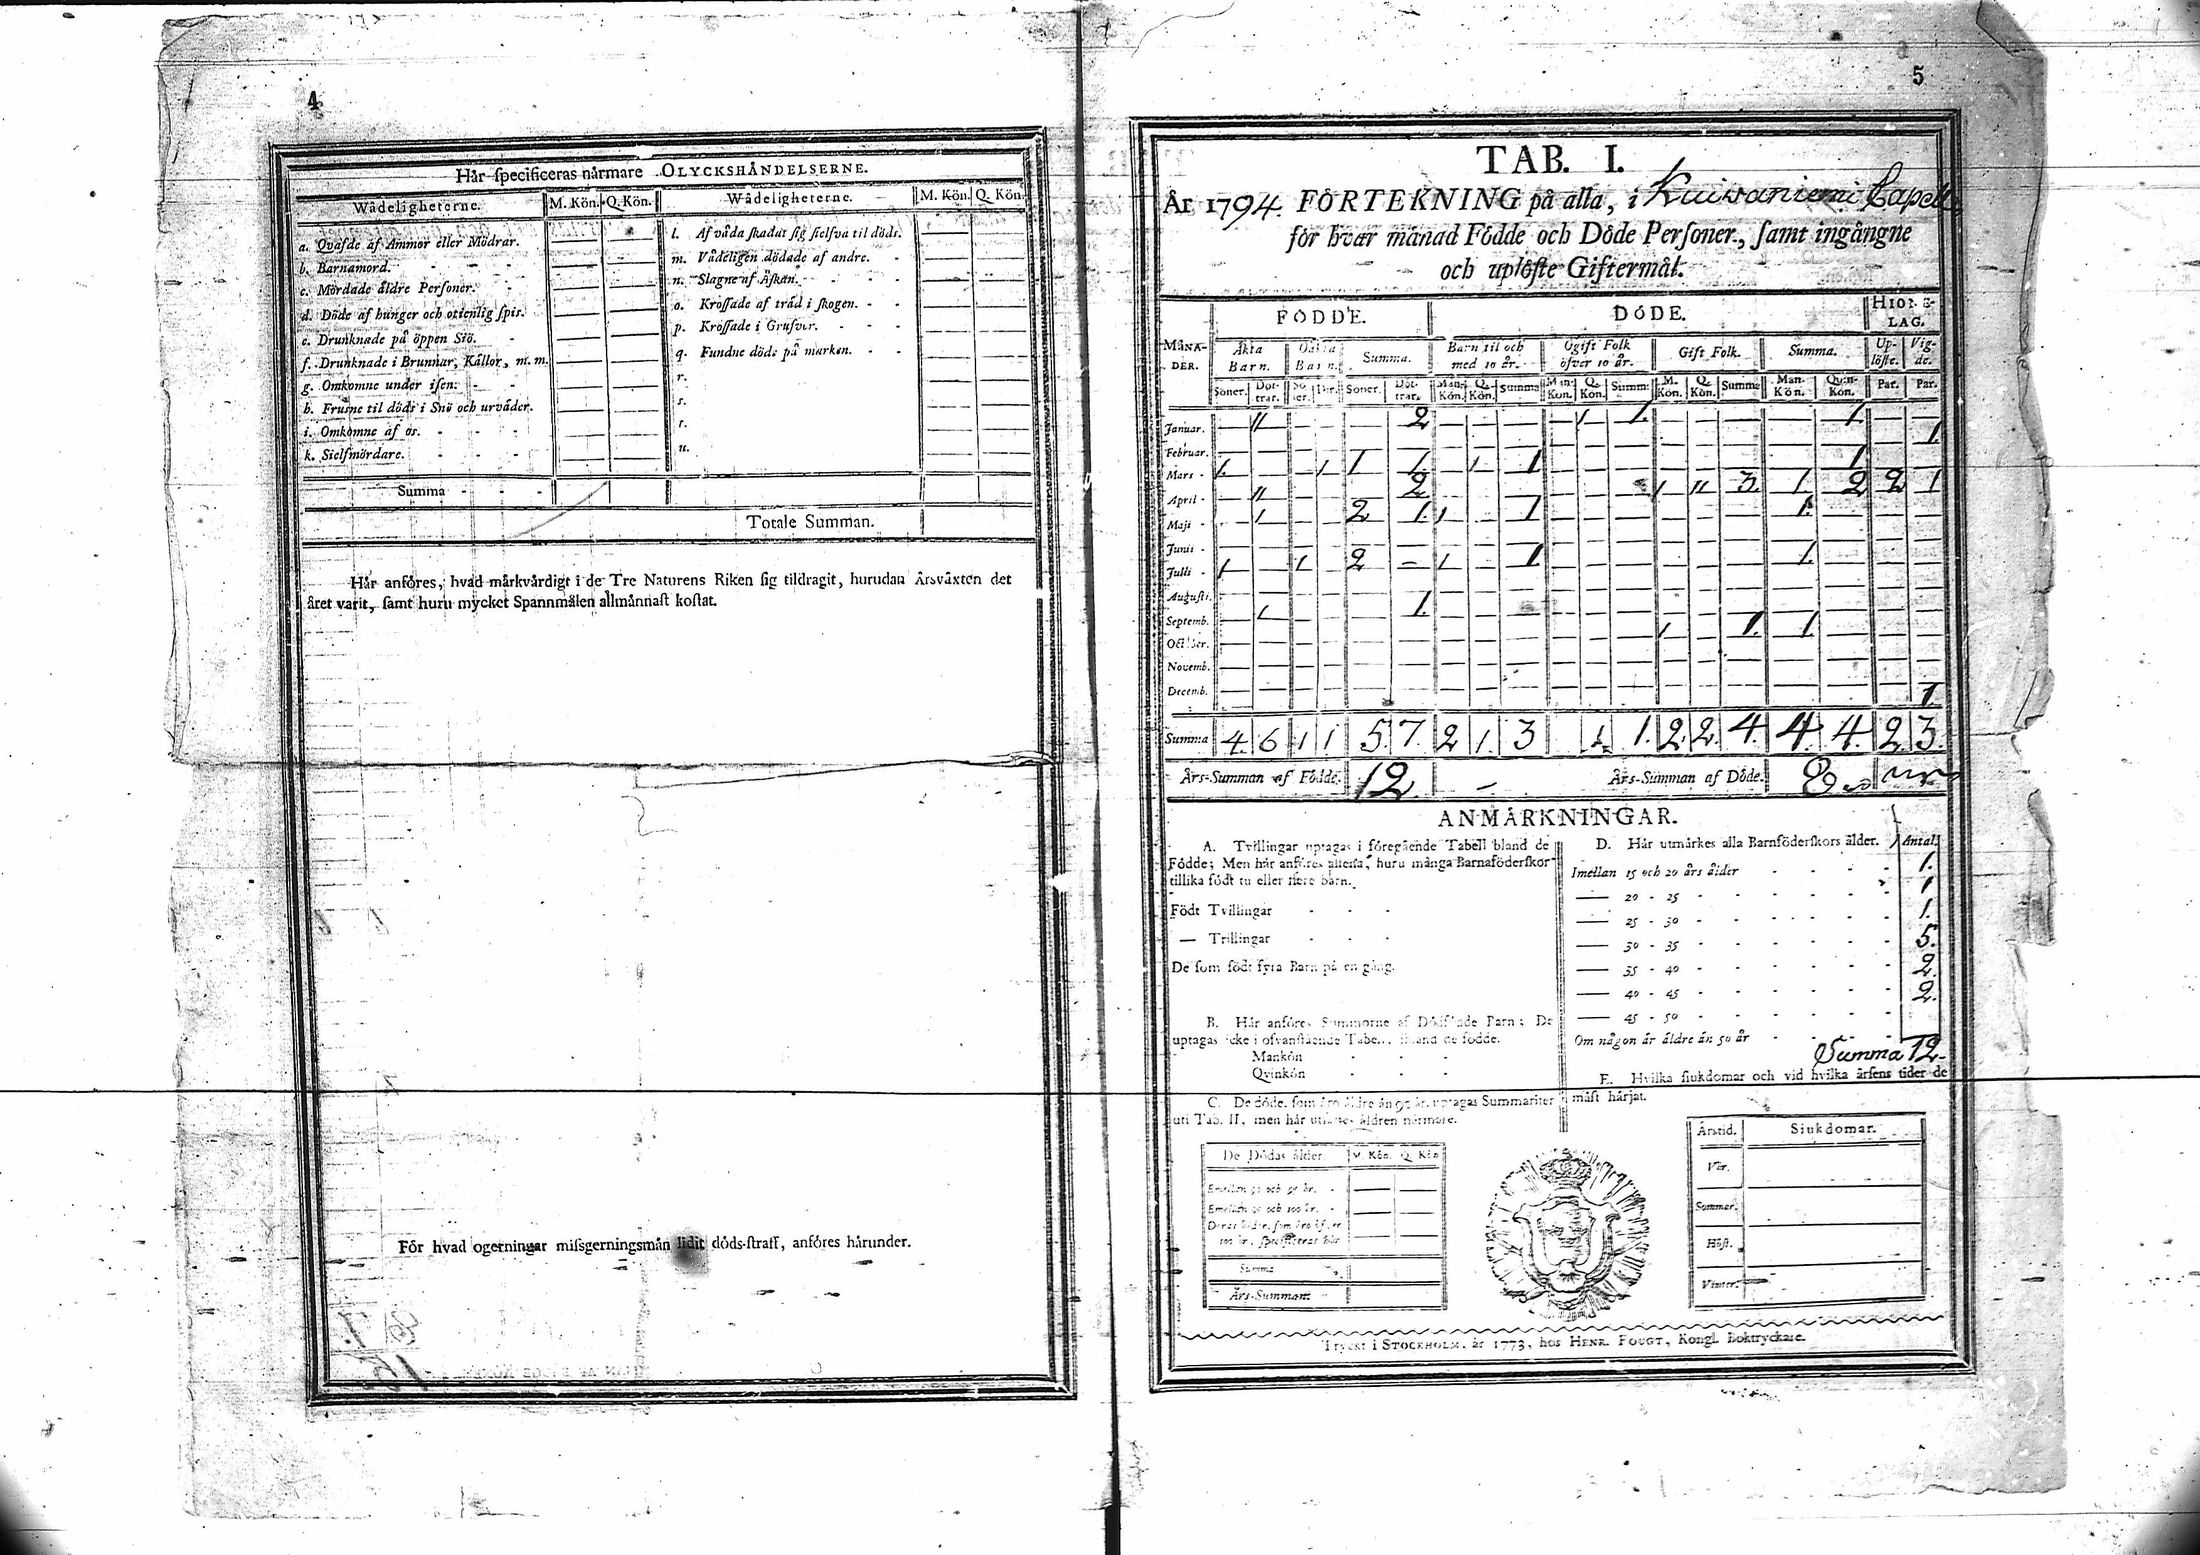 4
Hår specificeras nårmare OLYCKSHÅNDELSERNE.
Wådeligheterne. M. Kön. Q. Kön. Wådeligheterne. M. Kön. Q. Kön.
a. Qvafde af Ammor eller Mödrar.
b. Barnamord.
c. Mördade åldre Personer.
d. Döde af hunger och otienlig spis.
e. Drunknade på öppen Siö.
f. Drunknade i Brunnar, Kållor, m. m.
g. Omkomne under isen.
h. Frusne til döds i Snö och urvåder.
i. Omkomne af os.
k. Sielfmördare.
l. Af våda skadat sig sielfva til döds.
m. Vådeligen dödade af andre.
n. Slagne af Åskan.
o. Krossade af tråd i skogen.
p. Krossade i Grufvor.
q. Fundne döde på marken.
r.
s.
t.
u.
Summa
Totale Summan.
Hår anföres, hvad mårkvårdigt i de Tre Naturens Riken sig tildragit, hurudan Årsvåxten det
året varit, samt huru mycket Spannmålen allmånnast kostat.
För hvad ogerningar missgerningsmån lidit döds-straff, anföres hårunder.
5
TAB. I.
År 1794. FÖRTEKNING på alla, i Kuivaniemi Capell
för hvar månad Födde och Döde Personer, samt ingångne
och uplöste Giftermål.
FÖDDE. DÖDE. HIONELAG.
MÅNADER. Åkta Barn. Oåkta Barn. Summa. Barn til och med 10 år. Ogift Folk öfver 10 år. Gift Folk. Summa. Uplöste. Vigde.
Söner. Döttrar. Söner. Dör. Söner. Döttrar. Man-Kön. Q. Kön. Summa Man-Kön. Q. Kön. Summ: M. Kön. Q. Kön. Summa Man-Kön. Quin-Kön. Par. Par.
Januar. — 〃 2 1 1. 1.
Februar. 1.
Mars 1. 1 1 1. 1 1 1
April 〃 2 1 〃 3. 1. 2 2 1
Maji 1 2 1. 1 1 1.
Junii
Julli 1 1 2 – 1 1 1.
Augusti.
Septemb. 1 1.
October. 1 1. 1.
Novemb.
Decemb. 1.
Summa 4. 6 1 1 5. 7. 2 1. 3 1. 1. 2 2. 4. 4. 4. 2. 3.
Års-Summan af Födde. 12. Års-Summan af Döde. 8
ANMÅRKNINGAR.
A. Tvillingar uptagas i föregående Tabell bland de
Födde; Men hår anföres altersa, huru många Barnaföderskor
tillika födt tu eller flere barn.
Födt Tvillingar
— Trillingar
De som födt fyra Barn på en gång.
B. Hår anföres Summorne af Dödfödde Barn; De
uptagas icke i ofvanstående Tabell, ibland de födde.
Mankön
Qvinkön
C. De döde, som åro åldre ån 90 år, uptagas Summariter
uti Tab. II, men hår utsåttes åldren nårmare.
De Dödas ålder M. Kön. Q. Kön
Emellan 91 och 95 år.
Emellan 95 och 100 år.
Deras ålder, som åro öfver
100 år, specificeras hår
Summa
Års-Summan:
D. Hår utmårkes alla Barnföderskors ålder. Antal.
Imellan 15 och 20 års ålder 1.
— 20 - 25 1
— 25 - 30 1.
— 30 - 35 5.
— 35 - 40 2.
— 40 - 45 2.
— 45 - 50
Om någon år åldre ån 50 år
Summa 12.
E. Hvilka siukdomar och vid hvilka årsens tider de
måst hårjat.
Årstid. Siukdomar.
Vår.
Sommar.
Höst.
Vinter.
Tryckt i STOCKHOLM, år 1773, hos HENR. FOUGT, Kongl. Boktryckare.